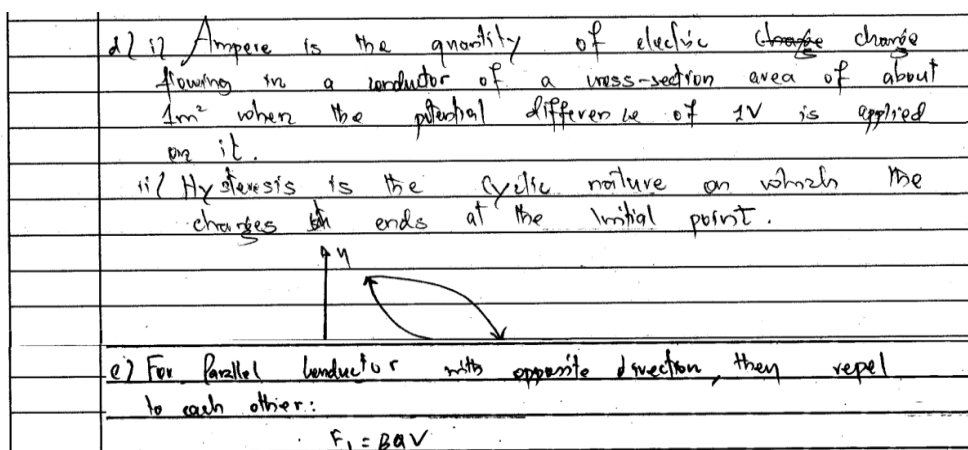 d) i) Ampere is the quantity of electric charge charge
flowing in a conductor of a cross-section area of about
1m² when the potential difference of 1V is applied
on it.
ii) Hysteresis is the cyclic nature on which the
charges ends at the initial point.
y
e) For Parallel Conductor with opposite direction, they repel
to each other:
F₁ = BQV